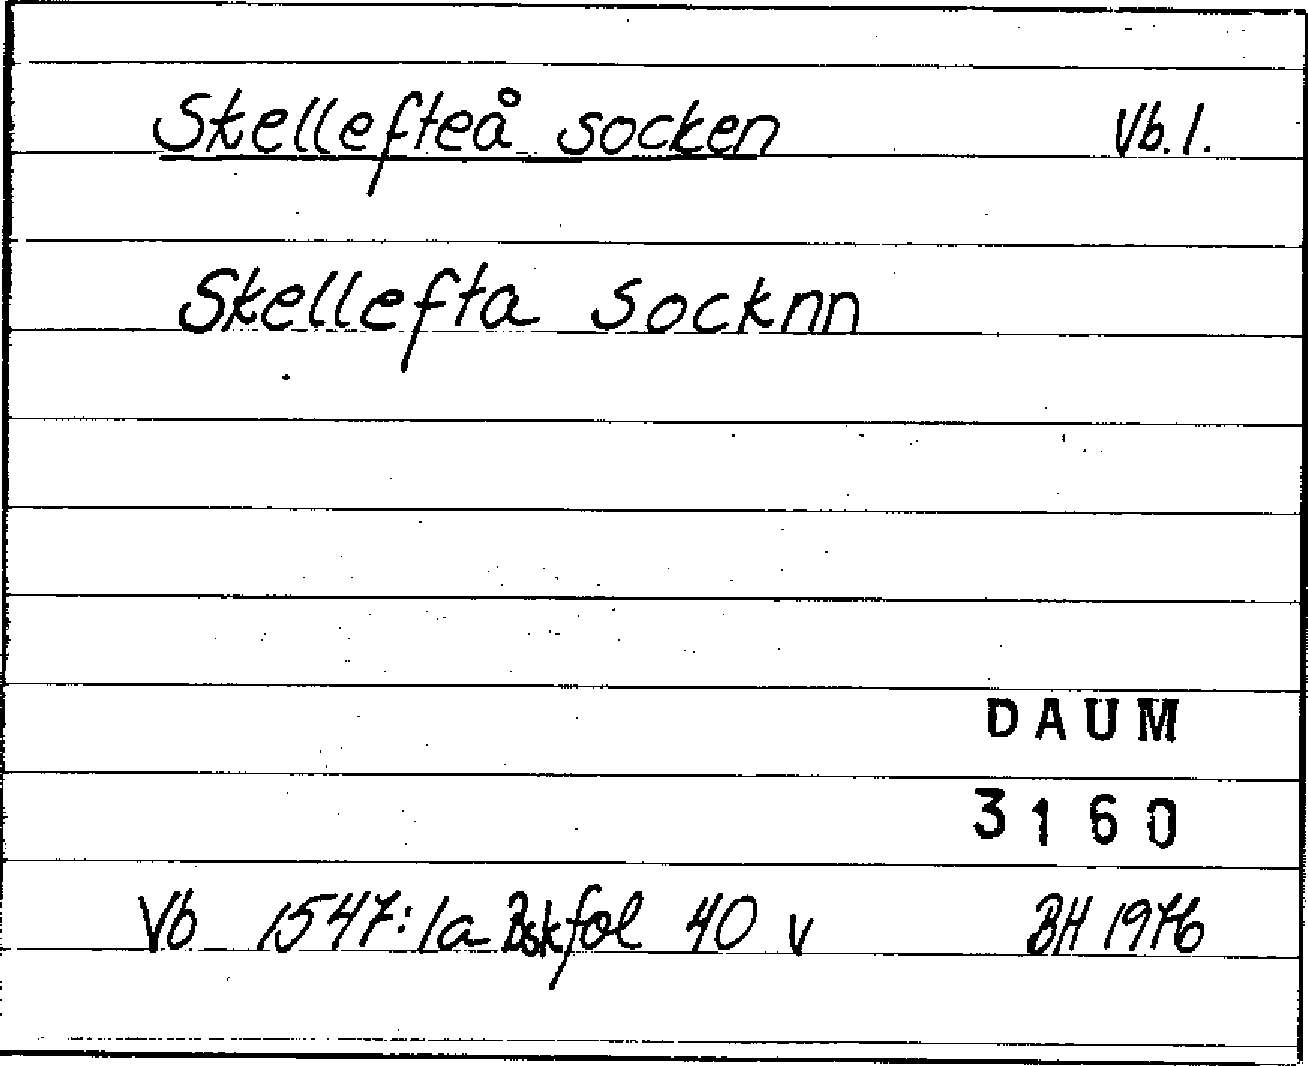 Skellefteå socken Vb. l.
Skellefta Socknn
DAUM
3160
Vb 1547:1a Bsk fol 40 v BH 1976